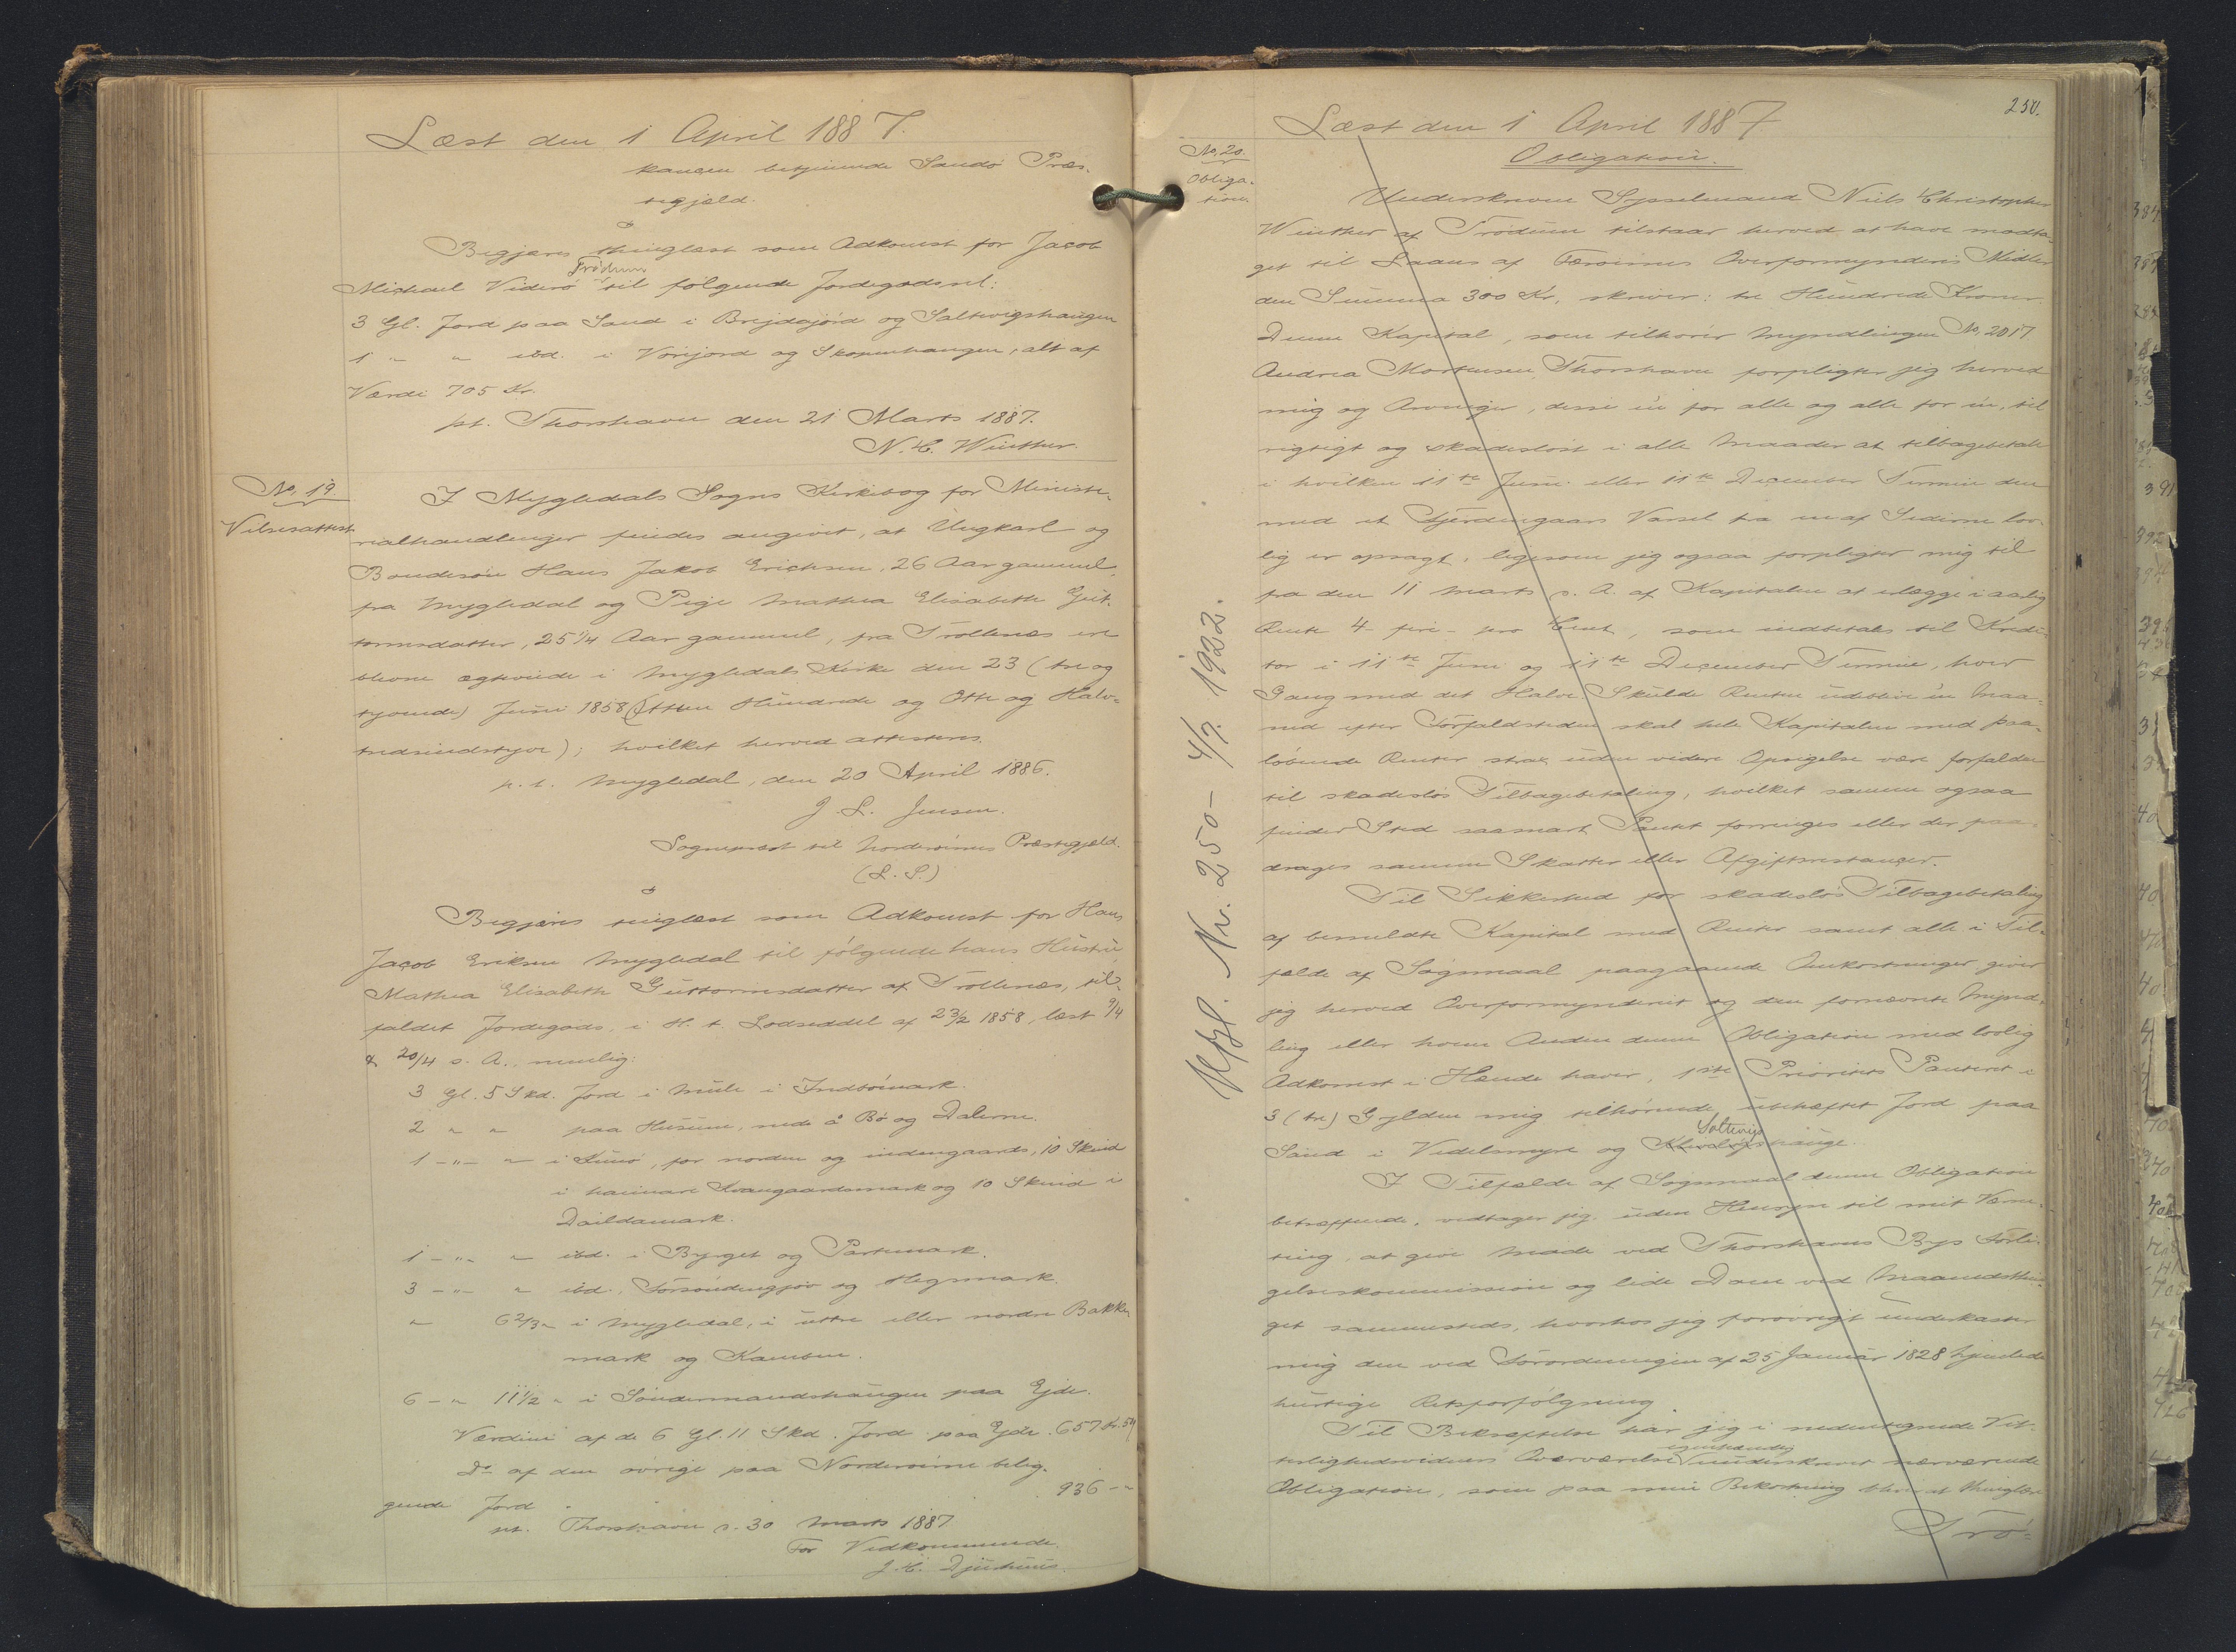 Læst den 1 April 1887.
kancen betjenende Sandø Præs-
tegjæld.
Begjæres thinglæst som Adkomst for Jacob
Trødum
Michael Viderø til følgende Jordegodsed:
3 Gl. Jord paa Sand i Brejdajørd og Saltvigshaugen
1 " " ibd. i Vorijord og Skopenhaugen, alt af
Værdi 705 Kr.
pt. Thorshavn den 21 Marts 1887.
N. C. Winther.
No. 19
Vilsesattest
I Mygledals Sogns Kirkebog for Ministe-
rialhandlinger findes angivet, at Ungkarl og
Bondesøn Hans Jakob Erichsen, 26 Aar gammel,
fra Mygledal og Pige Mathea Elisabeth Gut-
tormsdatter, 25 1/4 Aar gammel, fra Trøllenæs ere
blevne ægteviede i Mygledals Kirke den 23 (tre og
tyvende) Juni 1858 (Atten Hundrede og Otte og Halv-
tredsindstyve); hvilket herved attesteres.
p. t. Mygledal, den 20 April 1886.
J. L. Jensen.
Sognepræst til Norderøernes Præstegjæld.
(L. S.)
Begjæres tinglæst som Adkomst for Hans
Jacob Eriksen Mygledal til følgende hans Hustru
Mathea Elisabeth Guttormsdatter af Trøllenæs, til-
faldet Jordegods, i H. t. Lodseddel af 23/2 1858, læst 9/4
& 20/4 s. A., nemlig:
3 Gl. 5 Skd. Jord i Mule i Indbømark.
2 " " paa Husum, nede å Bø og Dalerne.
1 -"- " i Kunø, for norden og indengaards, 10 Skind
i haimare Kvangaardsmark og 10 Skind i
Daildamark.
1 -"- " ibd. i Byrget og Partemark.
3 -"- " ibd., Forsøndengjov og Hegnmark.
" 6 2/3 " i Mygledal, i uttre eller nordre Bakke
mark og Kamben.
6 -" 11 1/2 " i Søndermandshaugen paa Ejde.
Værdien af de 6 Gl. 11 Skd. Jord paa Ejde. 657 Kr. 50
Do af den øvrige paa Norderøerne belig-
gende Jord . 936 - "
pt. Thorshavn d. 30 Marts 1887
For Vedkommende.
J. H. Djurhuus.
250.
Læst den 1 April 1887
No. 20.
Obliga-
tion.
Obligation.
Underskreven Sysselmand Niels Christopher
Winther af Trødum tilstaar herved at have modta-
get til Laans af Færøernes Overformynderis Midler
den Summa 300 Kr., skriver: tre Hundrede Kroner.
Denne Kapital, som tilhører Myndlingen No. 2017
Andrea Mortensen, Thorshavn forpligter jeg herved
mig og Arvinger, desse én for alle og alle for én, til
rigtigt og skadesløst i alle Maader at tilbagebetale
i hvilken 11te Juni eller 11te December Termin den
med et Fjerdingaars Varsel fra en af Siderne lov-
lig er opsagt, ligesom jeg ogsaa forpligter mig til
fra den 11 Marts s. A. af Kapitalen at erlægge i aarlig
Rente 4 - fire - pro Cent, som indbetales til Kredi-
tor i 11te Juni og 11te December Termine, hver
Gang med det Halve. Skulde Renten udeblive én Maa-
ned efter Forfaldstiden skal hele Kapitalen med paa-
løbende Renter strax uden videre Opsigelse være forfalden
til skadesløs Tilbagebetaling, hvilket samme ogsaa
finder Sted saasnart Pantet forringes eller der paa-
drages samme Skatter eller Afgiftsrestancer.
Til Sikkerhed for skadesløs Tilbagebetaling
af bemeldte Kapital med Renter samt alle i Til-
fælde af Søgsmaal paagaaende Omkostninger giver
jeg herved Overformynderiet og den fornævnte Mynd-
ling eller hvem Anden denne Obligation med lovlig
Adkomst i Hænde haver, 1ste Prioritets Panteret i
3 (tre) Gylden mig tilhørende ubehæftet Jord paa
Saltvigs
Sand i Videlsmyre og hauge.
I Tilfælde af Søgsmaal denne Obligation
betræffende, vedtager jeg, uden Hensyn til mit Værne-
ting, at give Møde ved Thorshavns Bys Forli-
gelseskommission og lide Dom ved Maanedsthin-
get sammesteds, hvorhos jeg forøvrigt underkaster
mig den ved Forordningen af 25 Januar 1828 hjemlede
hurtige Retsforfølgning.
Til Bekræftelse har jeg i nedentegnede Vit-
egenhændig
terlighedsvidners Overværelse underskrevet nærværende
Obligation, som paa min Bekostning bliver at thinglæse
Trø-
Afgl. Nr. 250 - 4/7. 1922.